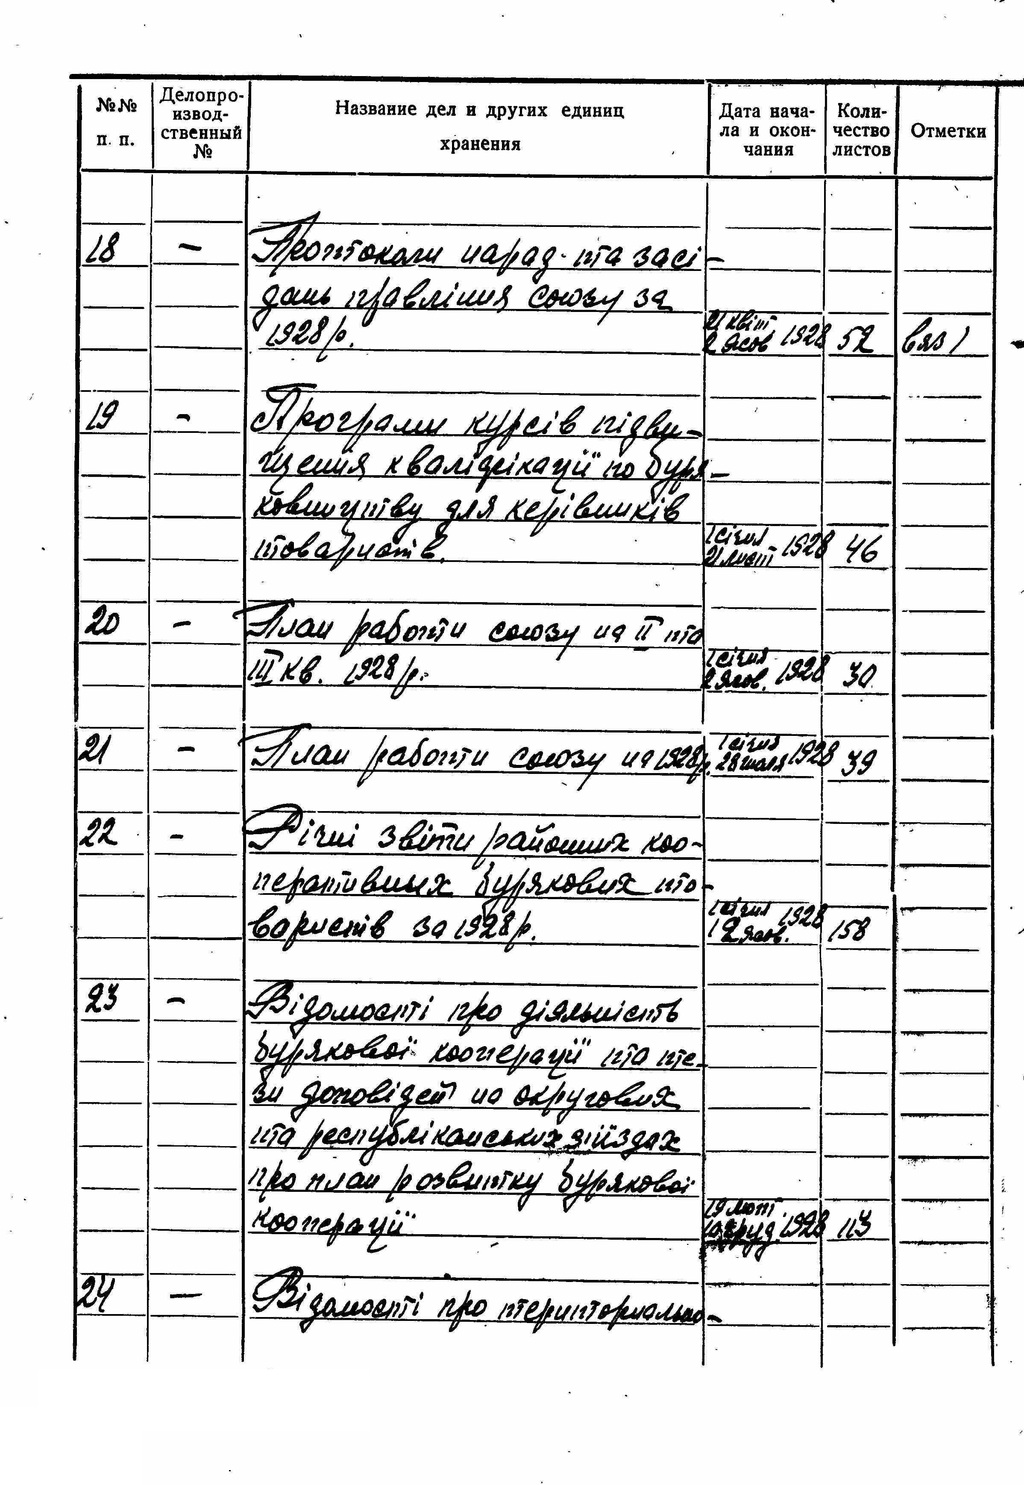 №№ п. п. Делопроизвод-ственный № Название дел и других единиц хранения Дата нача-ла и окон-чания Коли-чество листов Отметки
18 — Протоколи нарад та засі-
дань правління союзу за
1928 р. 21 квіт 2 жов 1928 52
19 - Програми курсів підви-
щення кваліфікації по буря-
ковництву для керівників
товариств. 1 січня 21 лист 1928 46
20 — План работи союзу на II та
III кв. 1928 р. 1 січня 2 жов. 1928 30
21 - План работи союзу на 1928 р. 1 січня 28 1928 39
22 - Річні звіти районних коо-
перативних бурякових то-
вариств за 1928 р. 1 січня 12 жов. 1928 158
23 - Відомості про діяльність
бурякової кооперації та те-
зи доповідей на округових
та республіканських з'їздах
про план розвитку бурякової
кооперації 19 лют 1928 113
24 — Відомості про територіально-